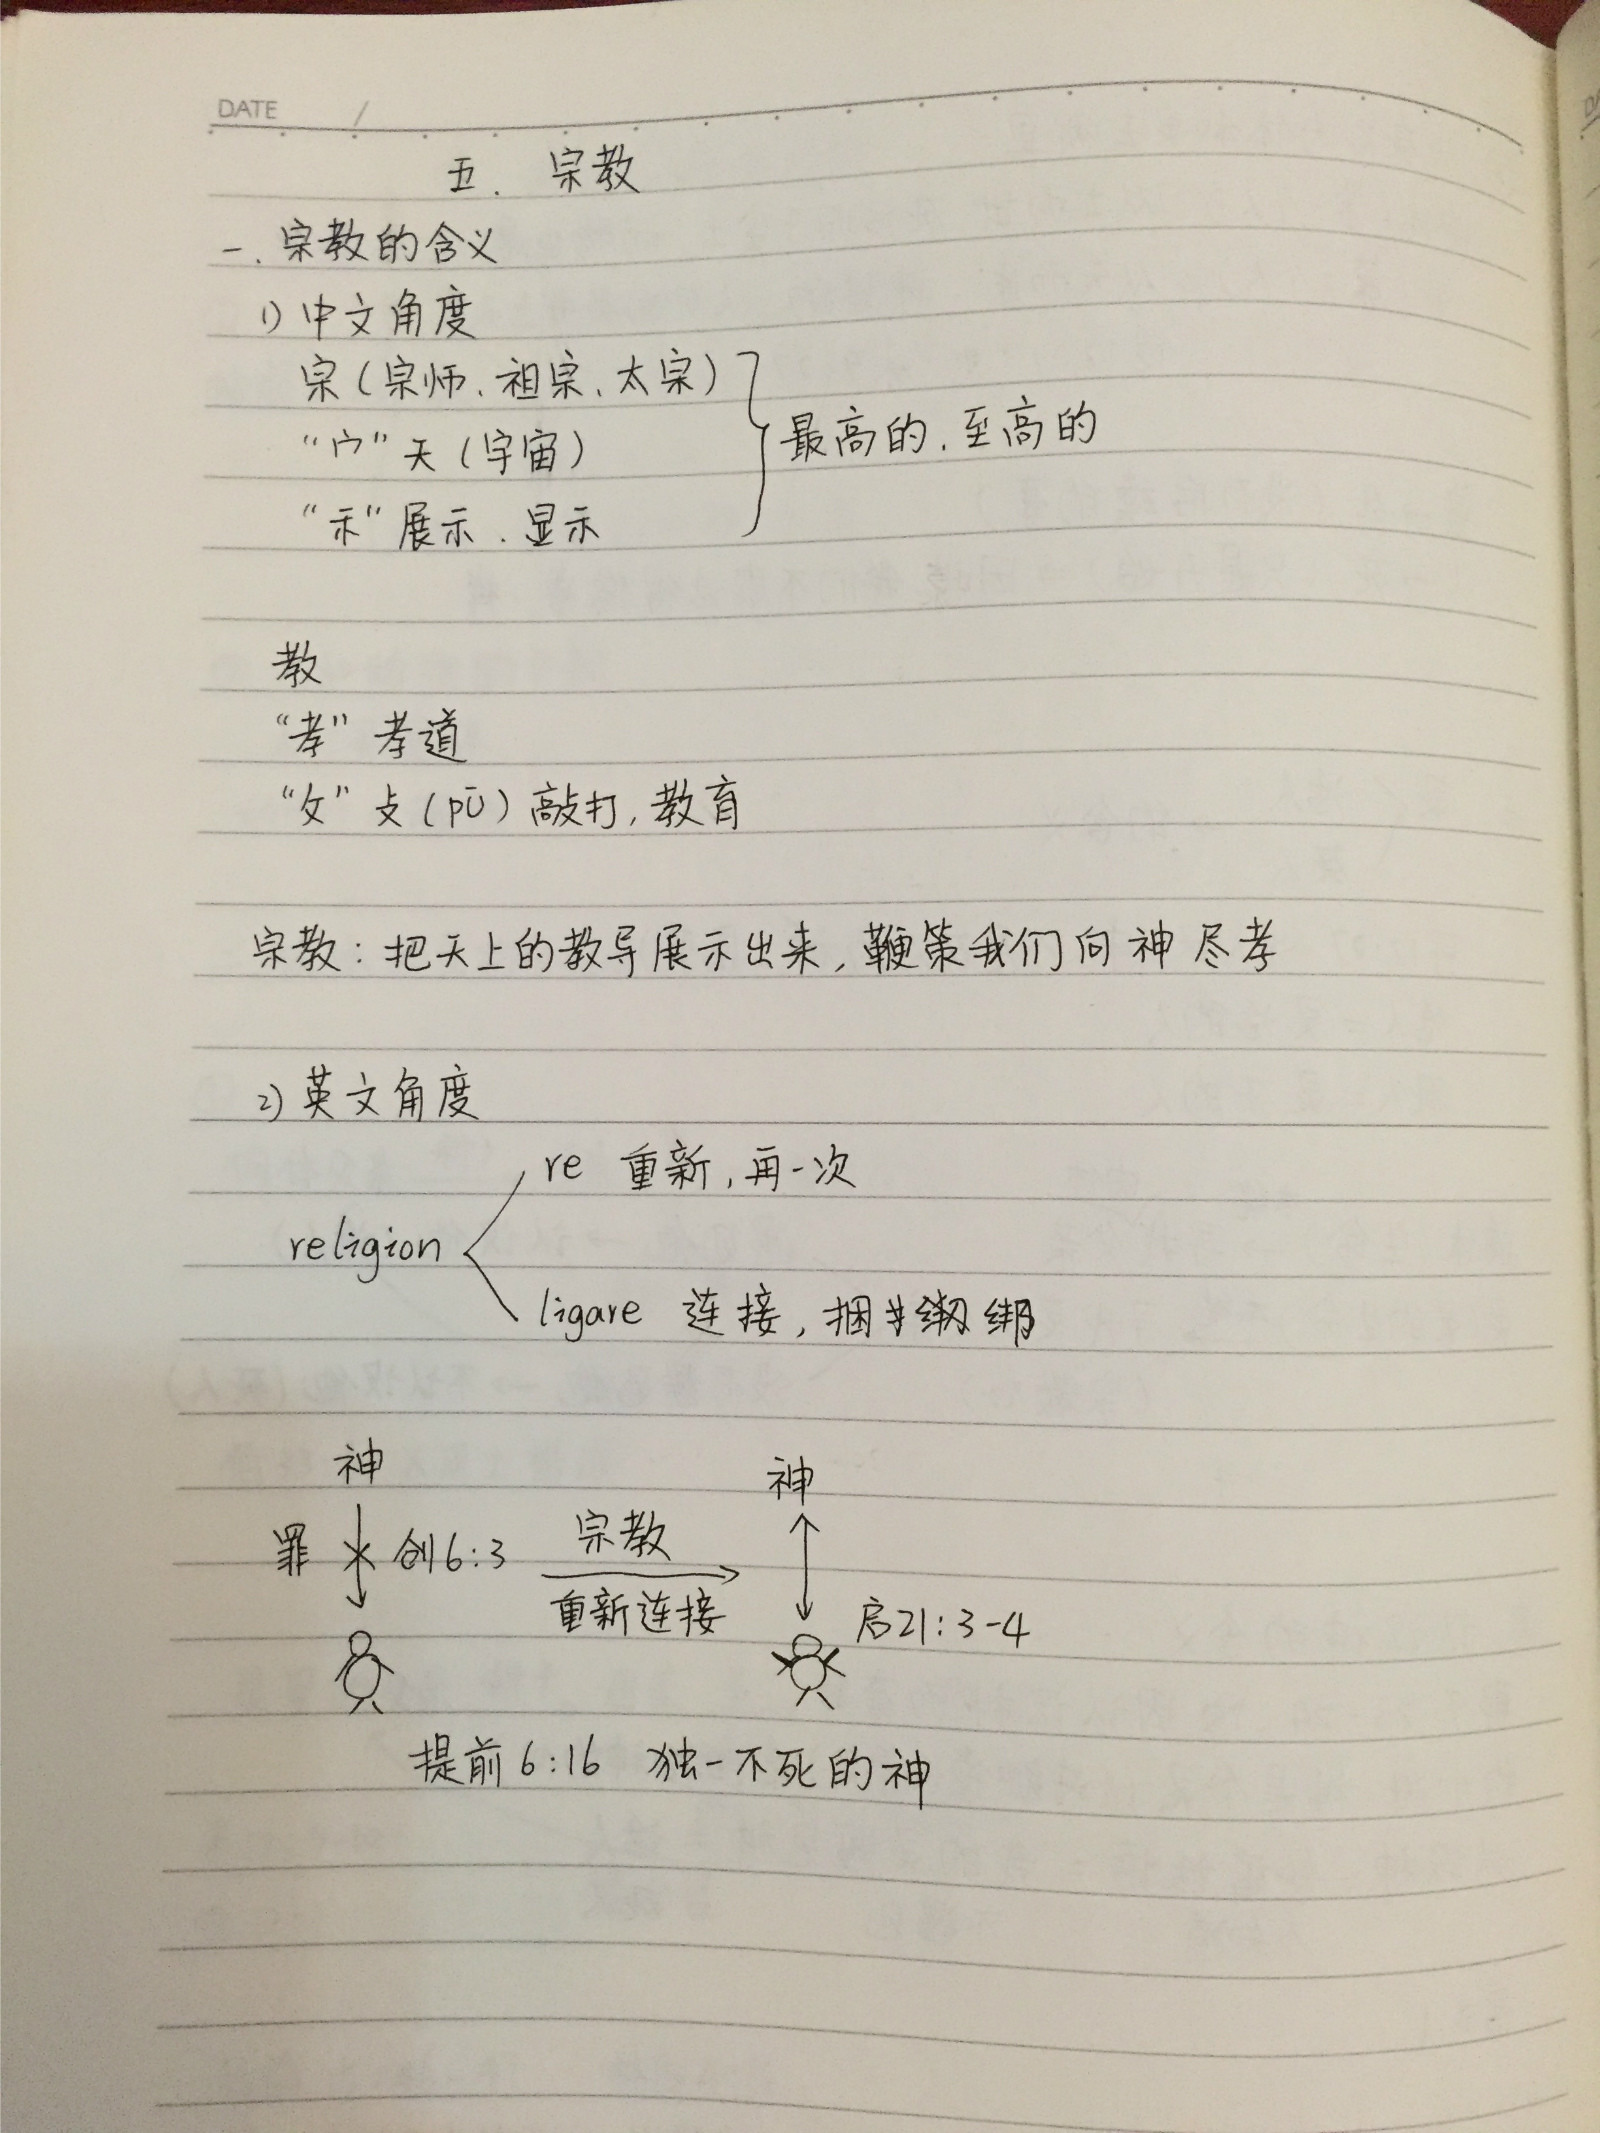 DATE /
五. 宗教
一. 宗教的含义
1) 中文角度
宗(宗师、祖宗、太宗)
“宀” 天(宇宙)
最高的、至高的
“示” 展示、显示
教
“孝” 孝道
“攵” 攴(pū) 敲打, 教育
宗教: 把天上的教导展示出来, 鞭策我们向神尽孝
2) 英文角度
re 重新, 再一次
religion
ligare 连接, 捆绑
神
神
罪 创6:3 宗教
重新连接
启21:3-4
提前6:16 独一不死的神